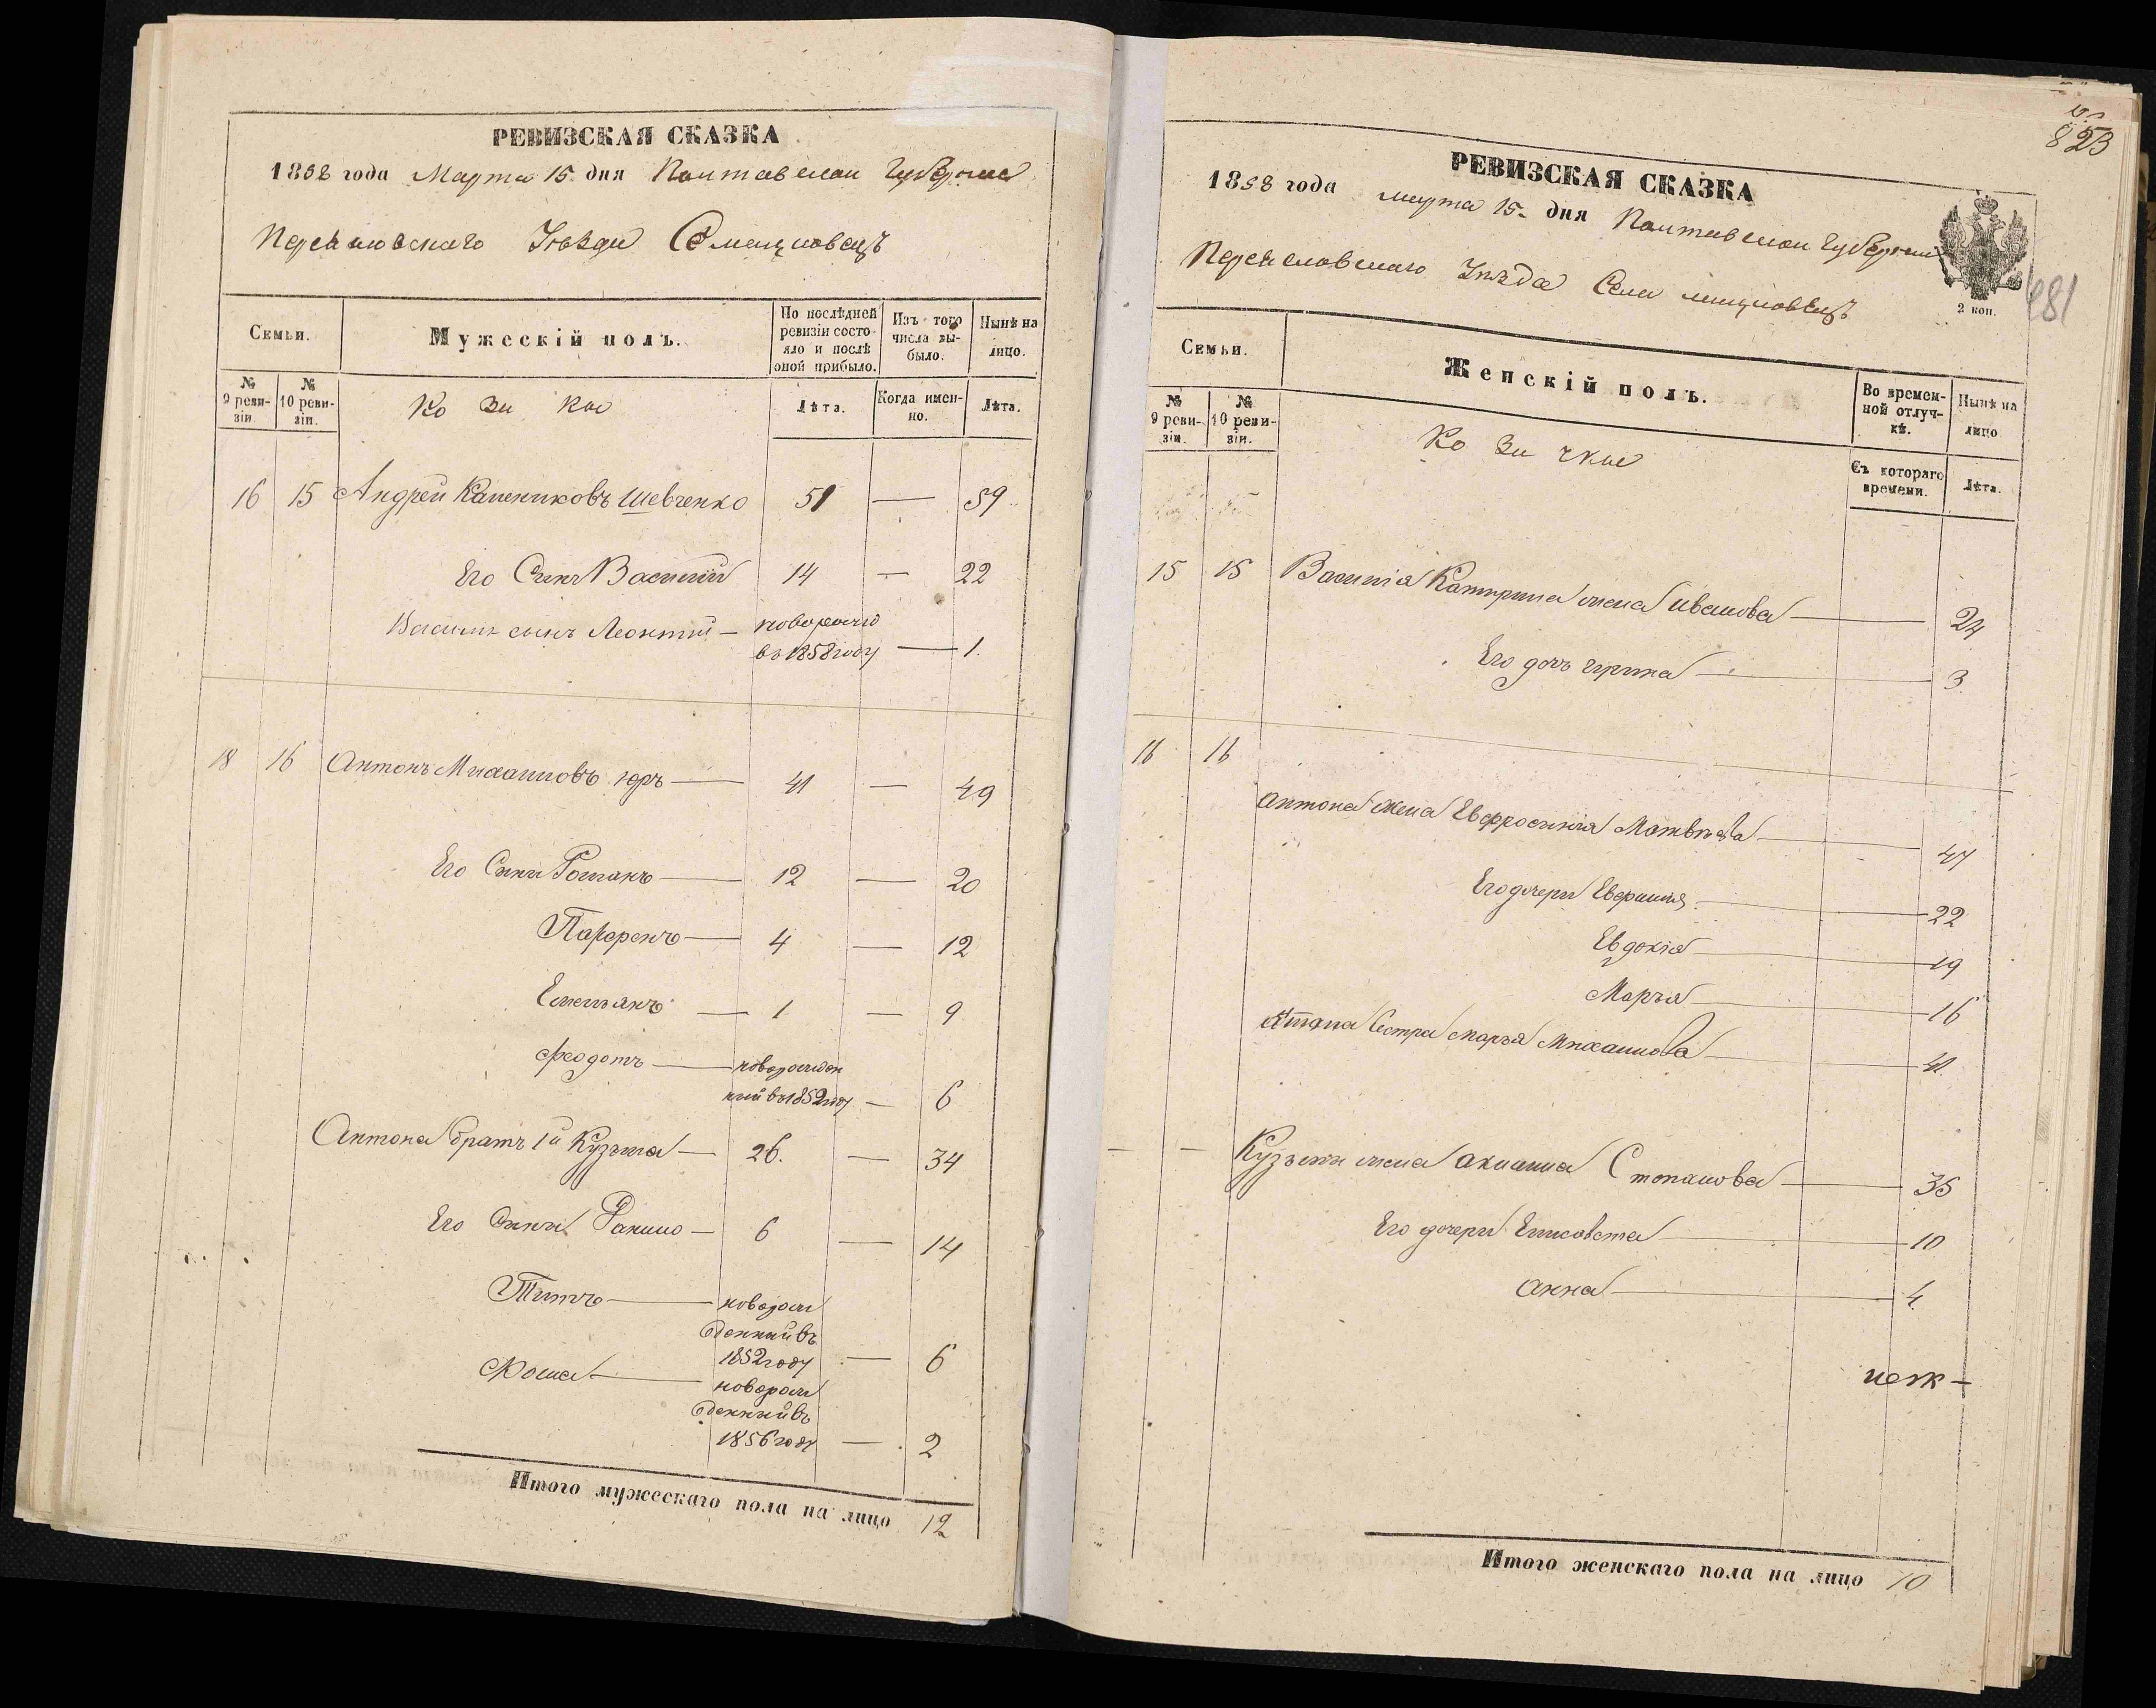 РЕВИЗСКАЯ СКАЗКА
1858 года Марта 15 дня Полтавской Губернии
Переяловскаго Уѣзда Села
Семьи.
Мужескій полъ.
По послѣдней ревизіи состояло и послѣ оной прибыло.
Изъ того числа выбыло.
Нынѣ на лицо.
№ 9 ревизіи.
№ 10 ревизіи.
Козаки
Лѣта.
Когда именно.
Лѣта.
16 15 Андрей Калениковъ Шевченко 51 — 59
Его Сынъ Василий 14 — 22
Василия сынъ Леонтий —
въ 1858 году — 1.
18 16 Антонъ Михаиловъ — 41 — 49
Его Сыны Романъ — 12 — 20
Парфенъ — 4 — 12
Емельянъ — 1 — 9
Феодотъ — новорожден
ный въ 1852 году — 6
Антона братъ 1й Кузьма — 26. — 34
Его Сыны — 6 — 14
Титъ — новорож
денный въ
1852 году — 6
Фома — новорож
денный въ
1856 году — 2
Итого мужескаго пола на лицо 12
823
481
РЕВИЗСКАЯ СКАЗКА
1858 года марта 15 дня Полтавской Губернии
Переясловскаго Уѣзда Села
2 коп.
Семьи.
Женскій полъ.
Во временной отлучкѣ.
Нынѣ на лицо
№ 9 ревизіи.
№ 10 ревизіи.
Козачки
Съ котораго времени.
Лѣта.
15 15 Василія Катирина жена Иванова — 24
Его дочь — 3
16 16
Антона жена Евфросинія Матвѣева — 47
Его дочери — 22
Евдокія — 19
Марья — 16
Сестра Марья Михаилова — 41
— — Кузьмы жена Акилина Степанова — 35
Его дочери Елисавета — 10
Анна — 4
Итого женскаго пола на лицо 10